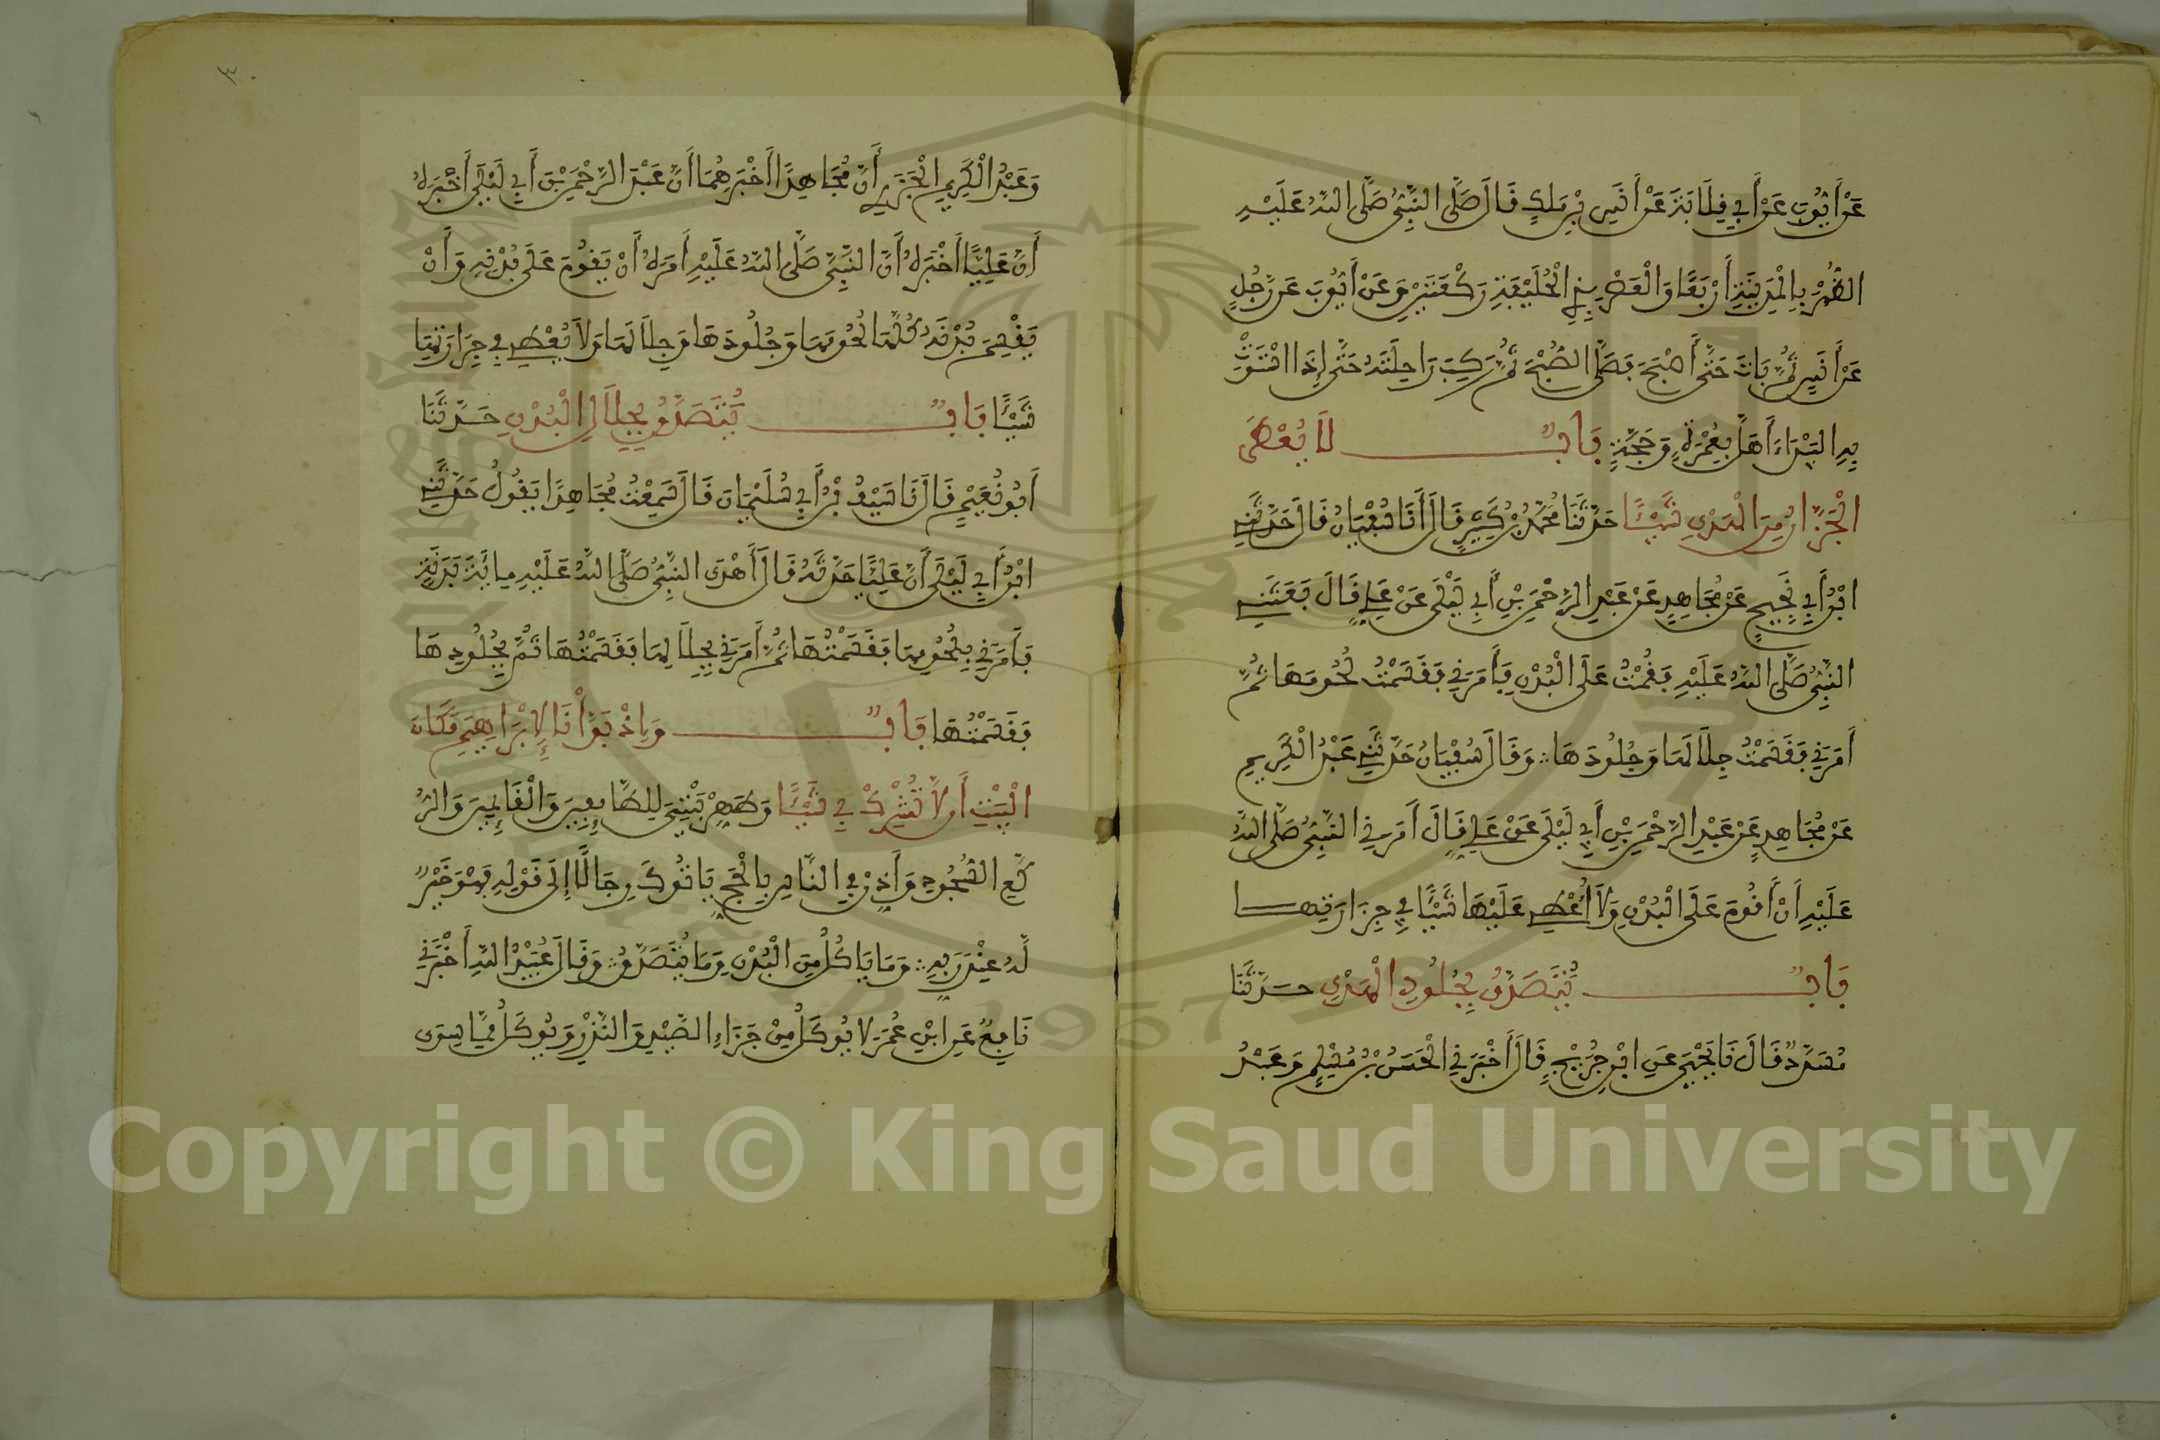 عَنْ أَيُّوبَ عَنْ أَبِي قِلَابَةَ عَنْ أَنَسِ بْنِ مَلِكٍ قَالَ صَلَّى النَّبِيُّ صَلَّى اللهُ عَلَيْهِ
الظُّهْرَ بِالْمَدِينَةِ أَرْبَعًا وَالْعَصْرَ بِذِي الْحُلَيْفَةِ رَكْعَتَيْنِ وَعَنْ أَيُّوبَ عَن رَّجُلٍ
عَنْ أَنَسٍ ثُمَّ بَاتَ حَتَّى أَصْبَحَ فَصَلَّى الصُّبْحَ ثُمَّ رَكِبَ رَاحِلَتَهُ حَتَّى إِذَا اسْتَوَتْ
بِهِ الْبَيْدَاءَ أَهَلَّ بِعُمْرَةٍ وَحَجَّةٍ بَابٌ لَا يُعْطَى
الْجَزَّارُ مِنَ الْهَدْيِ شَيْـًٔا حَدَّثَنَا مُحَمَّدُ بْنُ كَثِيرٍ قَالَ أَنَا سُفْيَانُ قَالَ حَدَّثَنِي
ابْنُ أَبِي نَجِيحٍ عَنْ مُجَاهِدٍ عَنْ عَبْدِ الرَّحْمَنِ بْنِ أَبِي لَيْلَى عَنْ عَلِيٍّ قَالَ بَعَثَنِي
النَّبِيُّ صَلَّى اللهُ عَلَيْهِ فَقُمْتُ عَلَى الْبُدْنِ فَأَمَرَنِي فَقَسَمْتُ لُحُومَهَا ثُمَّ
أَمَرَنِي فَقَسَمْتُ جِلَالَهَا وَجُلُودَهَا وَقَالَ سُفْيَانُ حَدَّثَنِي عَبْدُ الْكَرِيمِ
عَنْ مُجَاهِدٍ عَنْ عَبْدِ الرَّحْمَنِ بْنِ أَبِي لَيْلَى عَنْ عَلِيٍّ قَالَ أَمَرَنِي النَّبِيُّ صَلَّى اللهُ
عَلَيْهِ أَنْ أَقُومَ عَلَى الْبُدْنِ وَلَا أُعْطِيَ عَلَيْهَا شَيْـًٔا فِي جِزَارَتِهَا
بَابٌ يُتَصَدَّقُ بِجُلُودِ الْهَدْيِ حَدَّثَنَا
مُسَدَّدٌ قَالَ نَا يَحْيَى عَنِ ابْنِ جُرَيْجٍ قَالَ أَخْبَرَنِي الْحَسَنُ بْنُ مُسْلِمٍ وَعَبْدُ
٣
وَعَبْدُ الْكَرِيمِ الْجَزَرِيُّ أَنَّ مُجَاهِدًا أَخْبَرَهُمَا أَنَّ عَبْدَ الرَّحْمَنِ بْنَ أَبِي لَيْلَى أَخْبَرَهُ
أَنَّ عَلِيًّا أَخْبَرَهُ أَنَّ النَّبِيَّ صَلَّى اللهُ عَلَيْهِ أَمَرَهُ أَنْ يَقُومَ عَلَى بُدْنِهِ وَأَنْ
يَقْسِمَ بُدْنَهُ كُلَّهَا لُحُومَهَا وَجُلُودَهَا وَجِلَالَهَا وَلَا يُعْطِيَ فِي جِزَارَتِهَا
شَيْـًٔا بَابٌ يُتَصَدَّقُ بِجِلَالِ الْبُدْنِ حَدَّثَنَا
أَبُو نُعَيْمٍ قَالَ نَا سَيْفُ بْنُ أَبِي سُلَيْمَانَ قَالَ سَمِعْتُ مُجَاهِدًا يَقُولُ حَدَّثَنِي
ابْنُ أَبِي لَيْلَى أَنَّ عَلِيًّا حَدَّثَهُ قَالَ أَهْدَى النَّبِيُّ صَلَّى اللهُ عَلَيْهِ مِائَةَ بَدَنَةٍ
فَأَمَرَنِي بِلُحُومِهَا فَقَسَمْتُهَا ثُمَّ أَمَرَنِي بِجِلَالِهَا فَقَسَمْتُهَا ثُمَّ بِجُلُودِهَا
فَقَسَمْتُهَا بَابٌ وَإِذْ بَوَّأْنَا لِإِبْرَاهِيمَ مَكَانَ
الْبَيْتِ أَن لَّا تُشْرِكْ بِي شَيْـًٔا وَطَهِّرْ بَيْتِيَ لِلطَّائِفِينَ وَالْقَائِمِينَ وَالرُّ
كَّعِ السُّجُودِ وَأَذِّنْ فِي النَّاسِ بِالْحَجِّ يَاتُوكَ رِجَالًا إِلَى قَوْلِهِ فَهْوَ خَيْرٌ
لَّهُ عِنْدَ رَبِّهِ وَمَا يَاكُلُ مِنَ الْبُدْنِ وَمَا يُتَصَدَّقُ وَقَالَ عُبَيْدُ اللهِ أَخْبَرَنِي
نَافِعٌ عَنِ ابْنِ عُمَرَ لَا يُوكَلُ مِنْ جَزَاءِ الصَّيْدِ وَالنَّذْرِ وَيُوكَلُ مِمَّا سِوَى
Copyright © King Saud University
1957